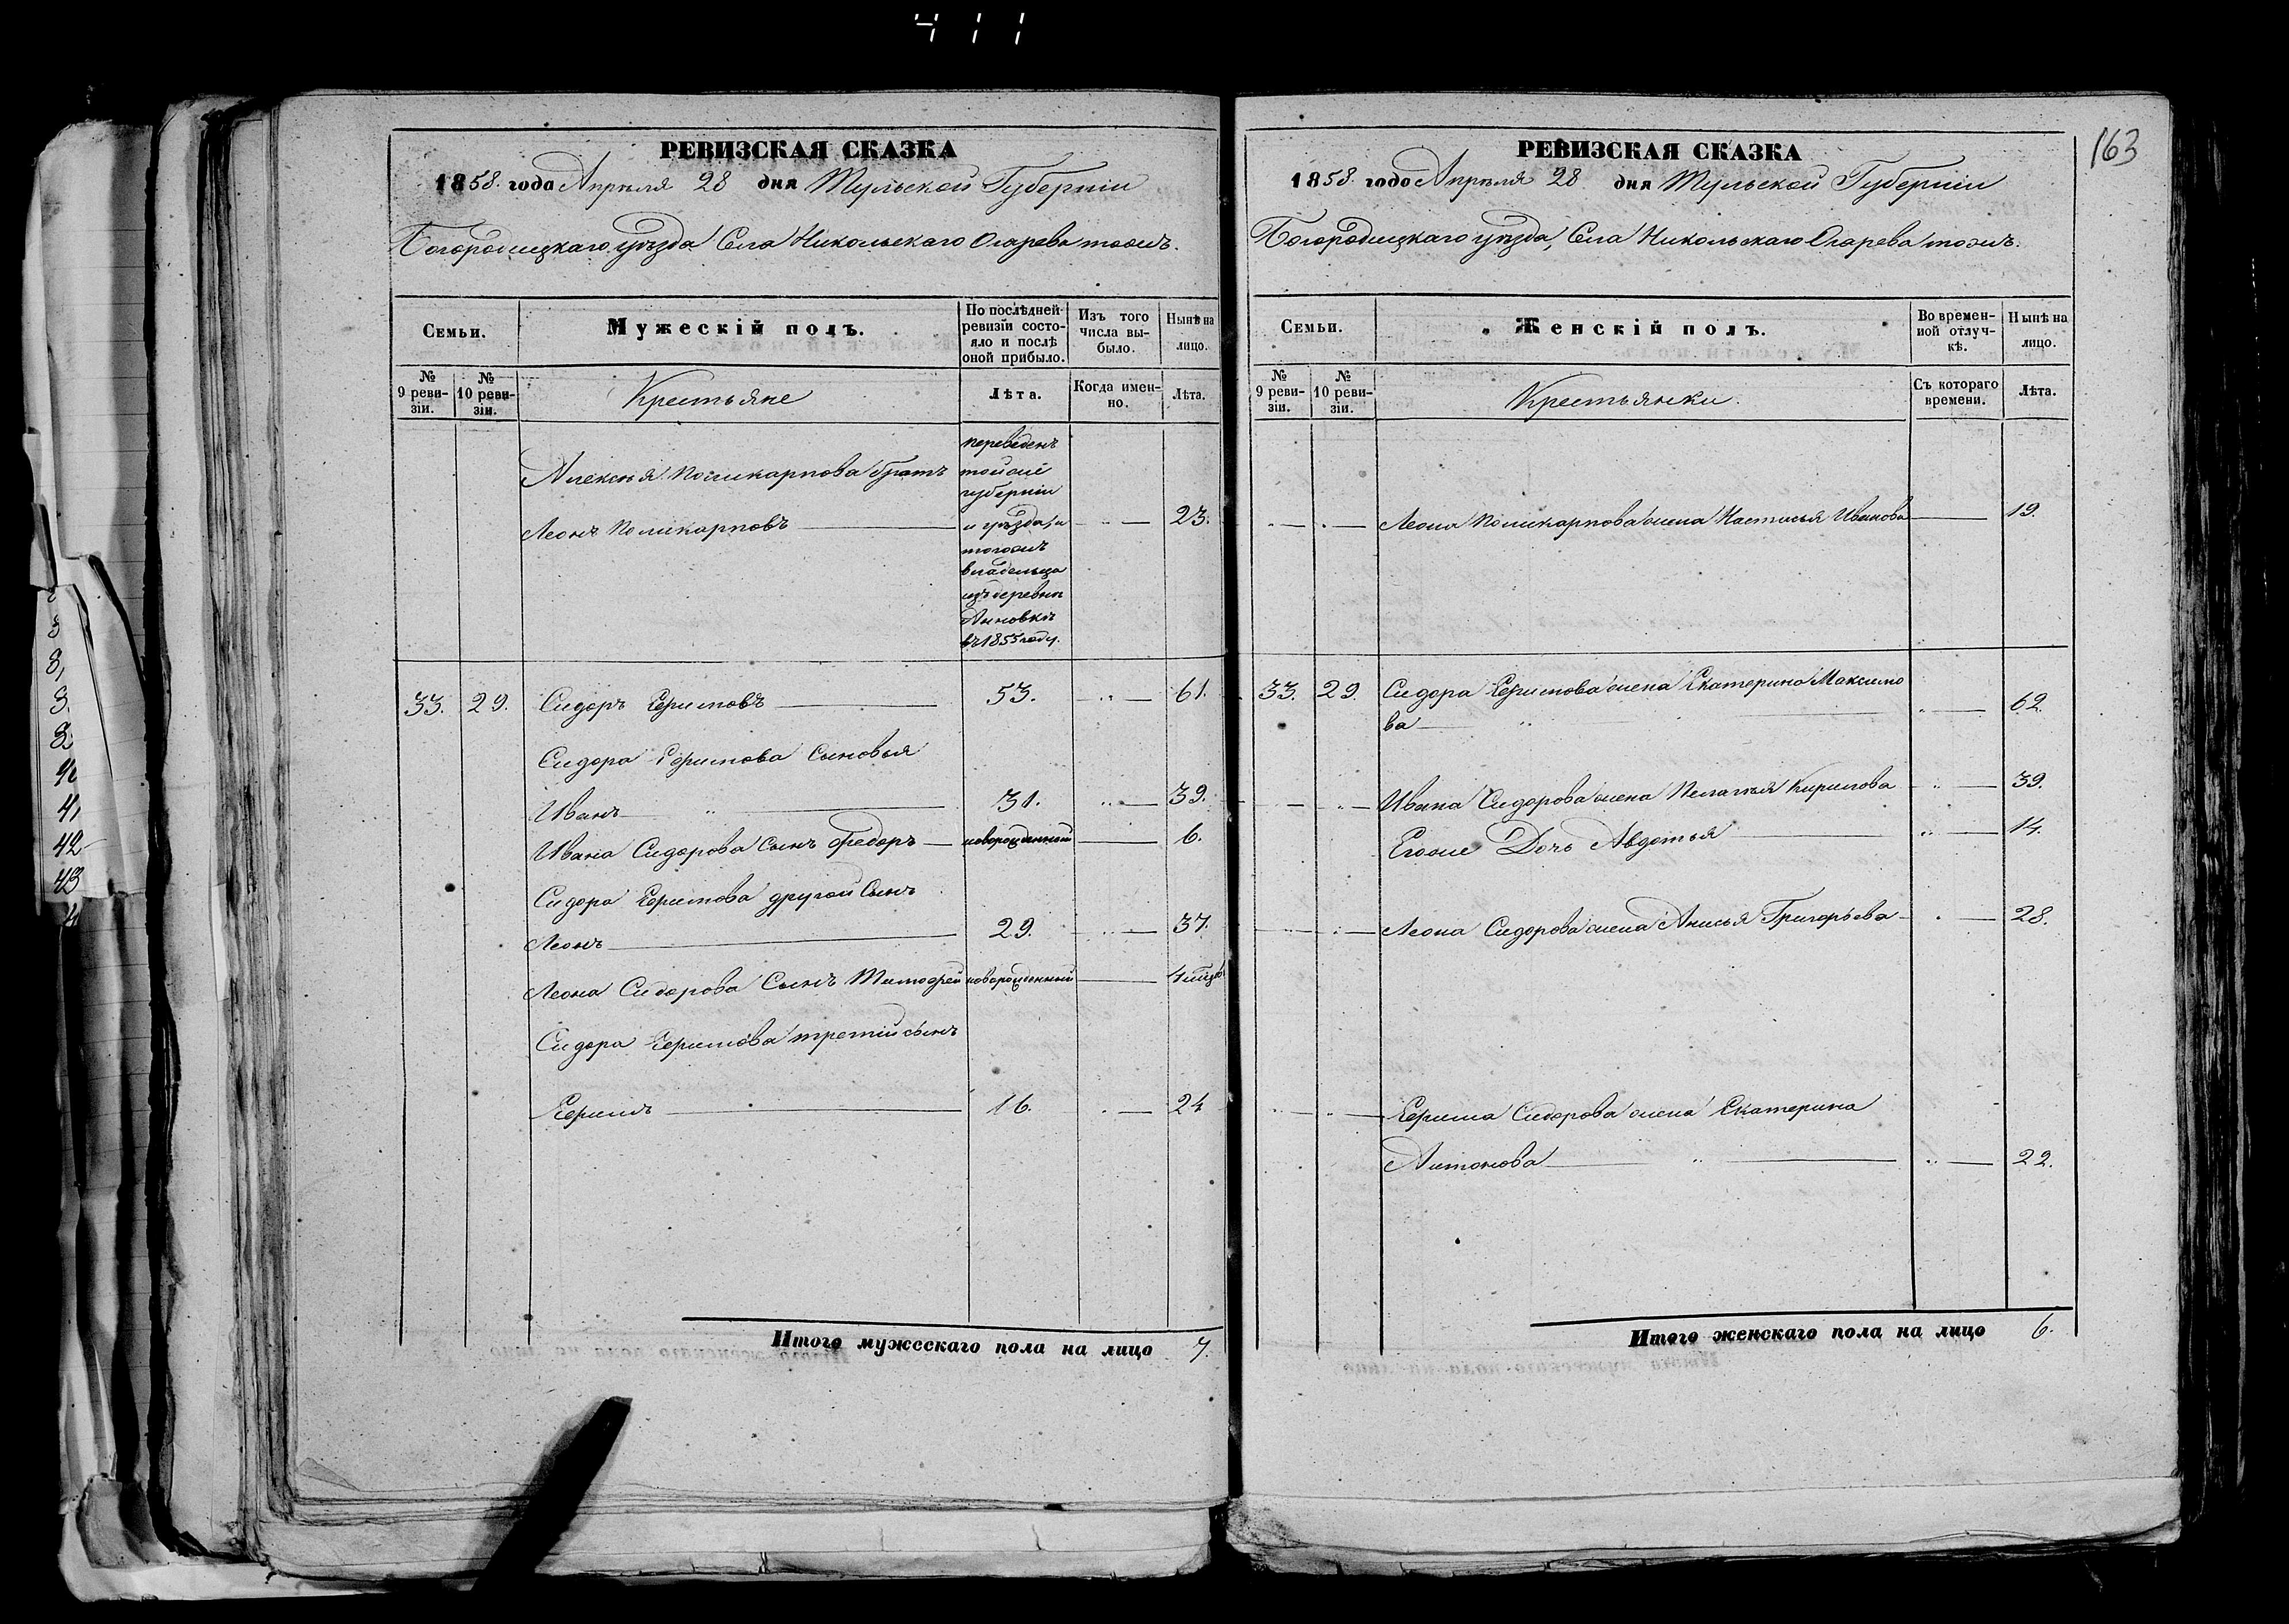 411
РЕВИЗСКАЯ СКАЗКА
1858. года Апрѣля 28 дня Тульской Губерніи
Богородицкаго уѣзда Села Никольскаго Огарева тожъ.
Семьи.
Мужескій полъ.
По послѣдней ревизіи состояло и послѣ оной прибыло.
Изъ того числа выбыло.
Нынѣ на лицо.
№ 9 ревизіи.
№ 10 ревизіи.
Крестьяне
Лѣта.
Когда именно.
Лѣта.
Алексѣя Поликарпова братъ
Леонъ Поликарповъ 23.
переведенъ
тойже
губерніи
и уѣзда, и
тогожъ
владельца
изъ деревни
въ 1855 году.
33. 29. Сидоръ Ефимовъ 53. 61.
Сидора Ефимова Сыновья
Иванъ 31. 39.
Ивана Сидорова Сынъ Федоръ новорожденный 6.
Сидора Ефимова другой Сынъ
Леонъ 29. 37.
Леона Сидорова Сынъ Тимофей новорожденный 4
Сидора Ефимова третій сынъ
Ефимъ 16. 24
Итого мужескаго пола на лицо 7.
163
РЕВИЗСКАЯ СКАЗКА
1858. года Апрѣля 28 дня Тульской Губерніи
Богородицкаго уѣзда, Села Никольскаго Огарева тожъ.
Семьи.
Женскій полъ.
Во временной отлучкѣ.
Нынѣ на лицо.
№ 9 ревизіи.
№ 10 ревизіи.
Крестьянки.
Съ котораго времени.
Лѣта.
Леона Поликарпова жена Настасья Иванова 19.
33. 29 Сидора Ефимова жена Екатерина Максимо
ва 62.
Ивана Сидорова жена Пелагея Кирилова 39.
Егоже Дочь Авдотья 14.
Леона Сидорова жена Анисья Григорьева 28.
Ефима Сидорова жена Екатерина
Антонова 22.
Итого женскаго пола на лицо 6.
42
43